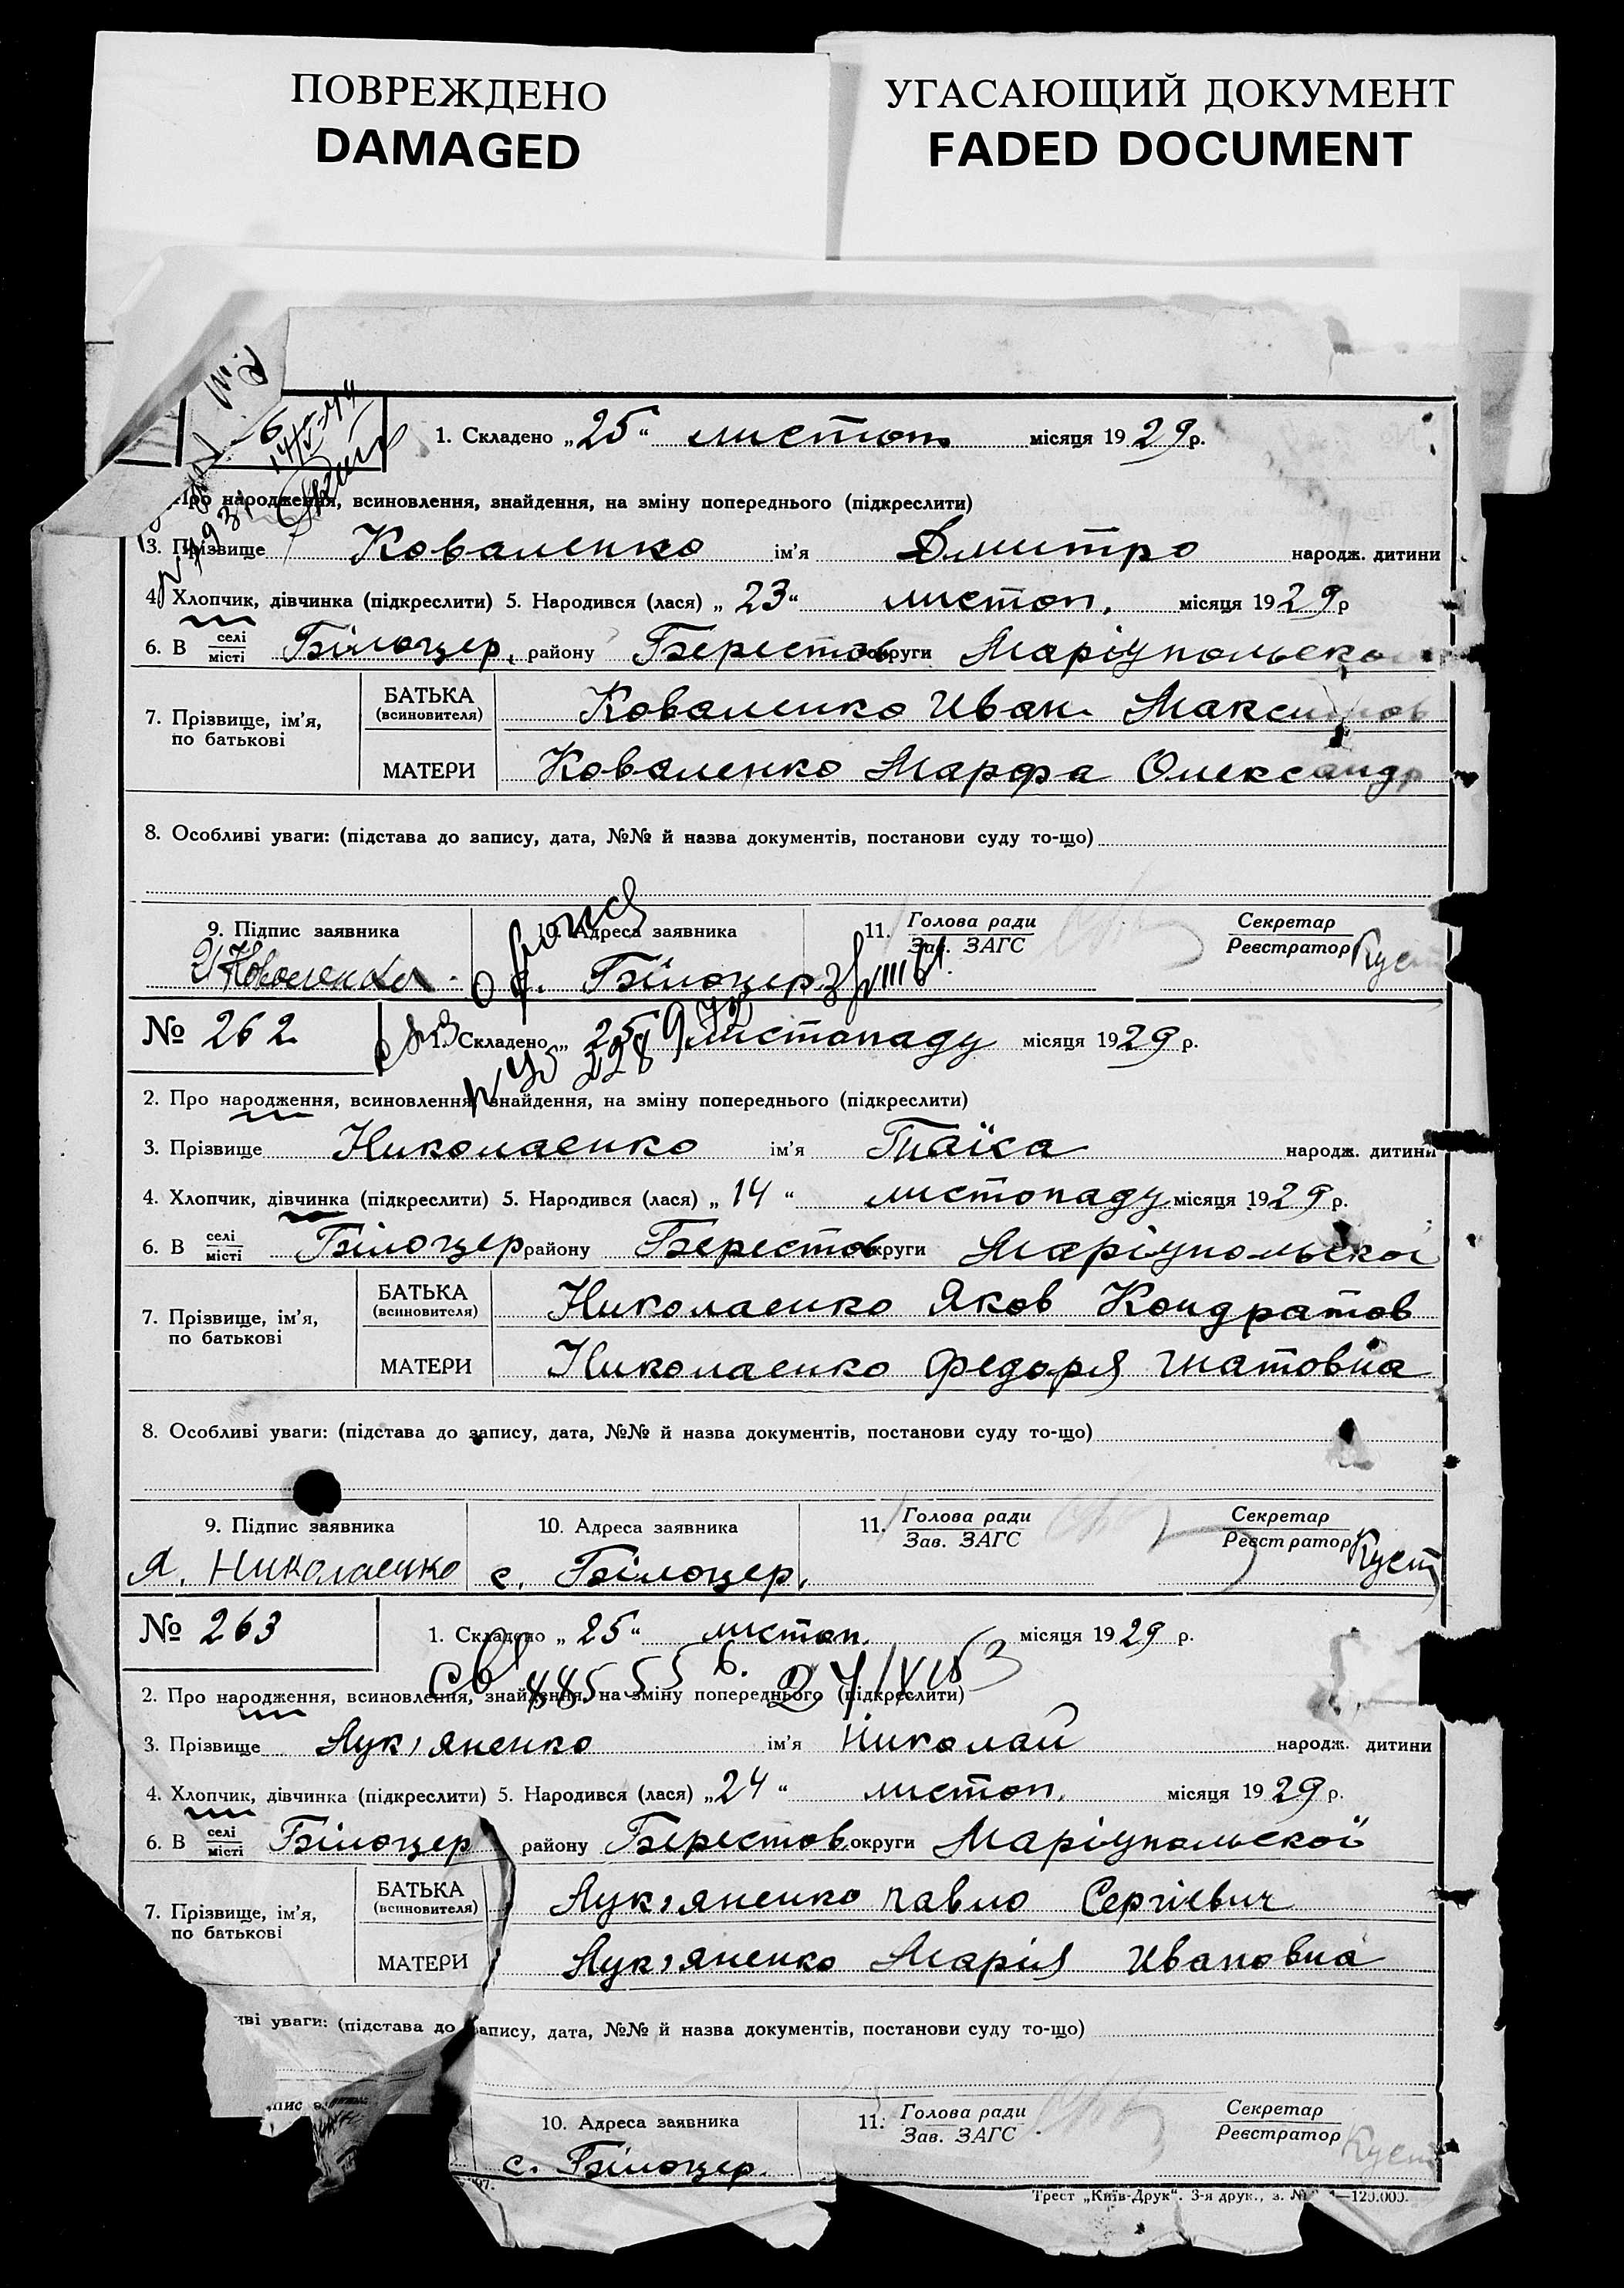 ПОВРЕЖДЕНО
DAMAGED
УГАСАЮЩИЙ ДОКУМЕНТ
FADED DOCUMENT
1. Складено „25“ листоп місяця 1929р.
Про народження, всиновлення, знайдення, на зміну попереднього (підкреслити)
3. Прізвище Коваленко ім'я Дмитро народж. дитини
4. Хлопчик, дівчинка (підкреслити) 5. Народився (лася) „23“ листоп. місяця 1929р
6. В селі місті Білоцер. району Берестов округи Маріупольсько
7. Прізвище, ім'я, по батькові
БАТЬКА (всиновителя) Коваленко Иван Максимов
МАТЕРИ Коваленко Марфа Олександр
8. Особливі уваги: (підстава до запису, дата, №№ й назва документів, постанови суду то-що)
9. Підпис заявника 10. Адреса заявника 11. Голова ради Зав. ЗАГС Секретар Реєстратор
с. Білоцер.
№ 262 1. Складено „25 листопаду місяця 1929 р.
2. Про народження, всиновлення, знайдення, на зміну попереднього (підкреслити)
3. Прізвище Николаенко ім'я Таїса народж. дитини
4. Хлопчик, дівчинка (підкреслити) 5. Народився (лася) „14“ листопаду місяця 1929 р.
6. В селі місті Білоцер району Берестов округи Маріупольскої
7. Прізвище, ім'я, по батькові
БАТЬКА (всиновителя) Николаенко Яков Кондратов
МАТЕРИ Николаенко Федора
8. Особливі уваги: (підстава до запису, дата, №№ й назва документів, постанови суду то-що)
9. Підпис заявника 10. Адреса заявника 11. Голова ради Зав. ЗАГС Секретар Реєстратор
Я. Николаенко с. Білоцер.
№ 263 1. Складено „25“ листоп. місяця 1929 р.
2. Про народження, всиновлення, знайдення, на зміну попереднього (підкреслити)
3. Прізвище Лук'яненко ім'я Николай народж. дитини
4. Хлопчик, дівчинка (підкреслити) 5. Народився (лася) „24“ листоп. місяця 1929 р.
6. В селі місті Білоцер району Берестов. округи Маріупольскої
7. Прізвище, ім'я, по батькові
БАТЬКА (всиновителя) Лук'яненко Павло Сергієвич
МАТЕРИ Лук'яненко Марія Ивановна
уваги: (підстава до запису, дата, №№ й назва документів, постанови суду то-що)
10. Адреса заявника 11. Голова ради Зав. ЗАГС Секретар Реєстратор
с. Білоцер.
Трест „Київ-Друк“. 3-я друк., з. 120.000.